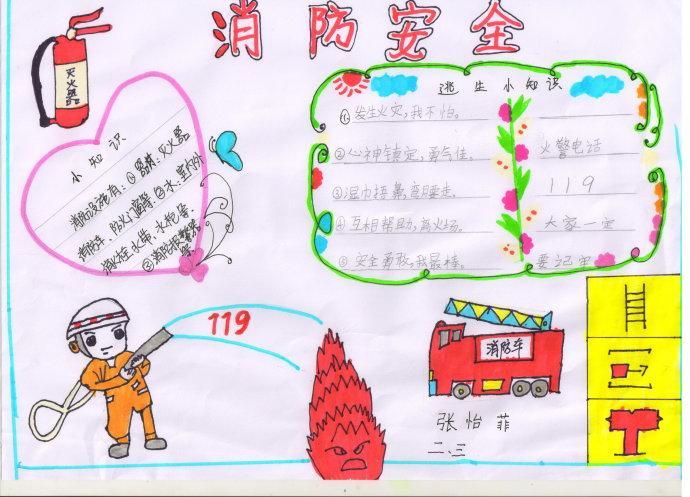 消防安全
灭火器
小知识
消防设施有：①器材：灭火器
消防车、防火
消火栓、水带、水枪等
②消防报警
逃生小知识
①发生火灾，我不怕。
②心神镇定，勇气佳。
③湿巾捂鼻，弯腰走。
④互相帮助，离火场。
⑤安全勇敢，我最棒。
火警电话
119
大家一定
要记牢
119
消防车
张怡菲
二、三